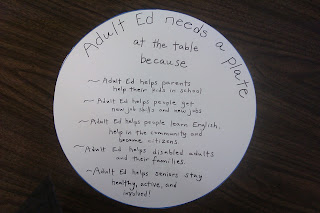 Adult Ed needs a plate
at the table
because
~ Adult Ed helps parents
help their kids in school
~ Adult Ed helps people get
new job skills and new jobs
~ Adult Ed helps people learn English,
help in the community and
become citizens
~ Adult Ed helps disabled adults
and their families.
~ Adult Ed helps seniors stay
healthy, active, and
involved!